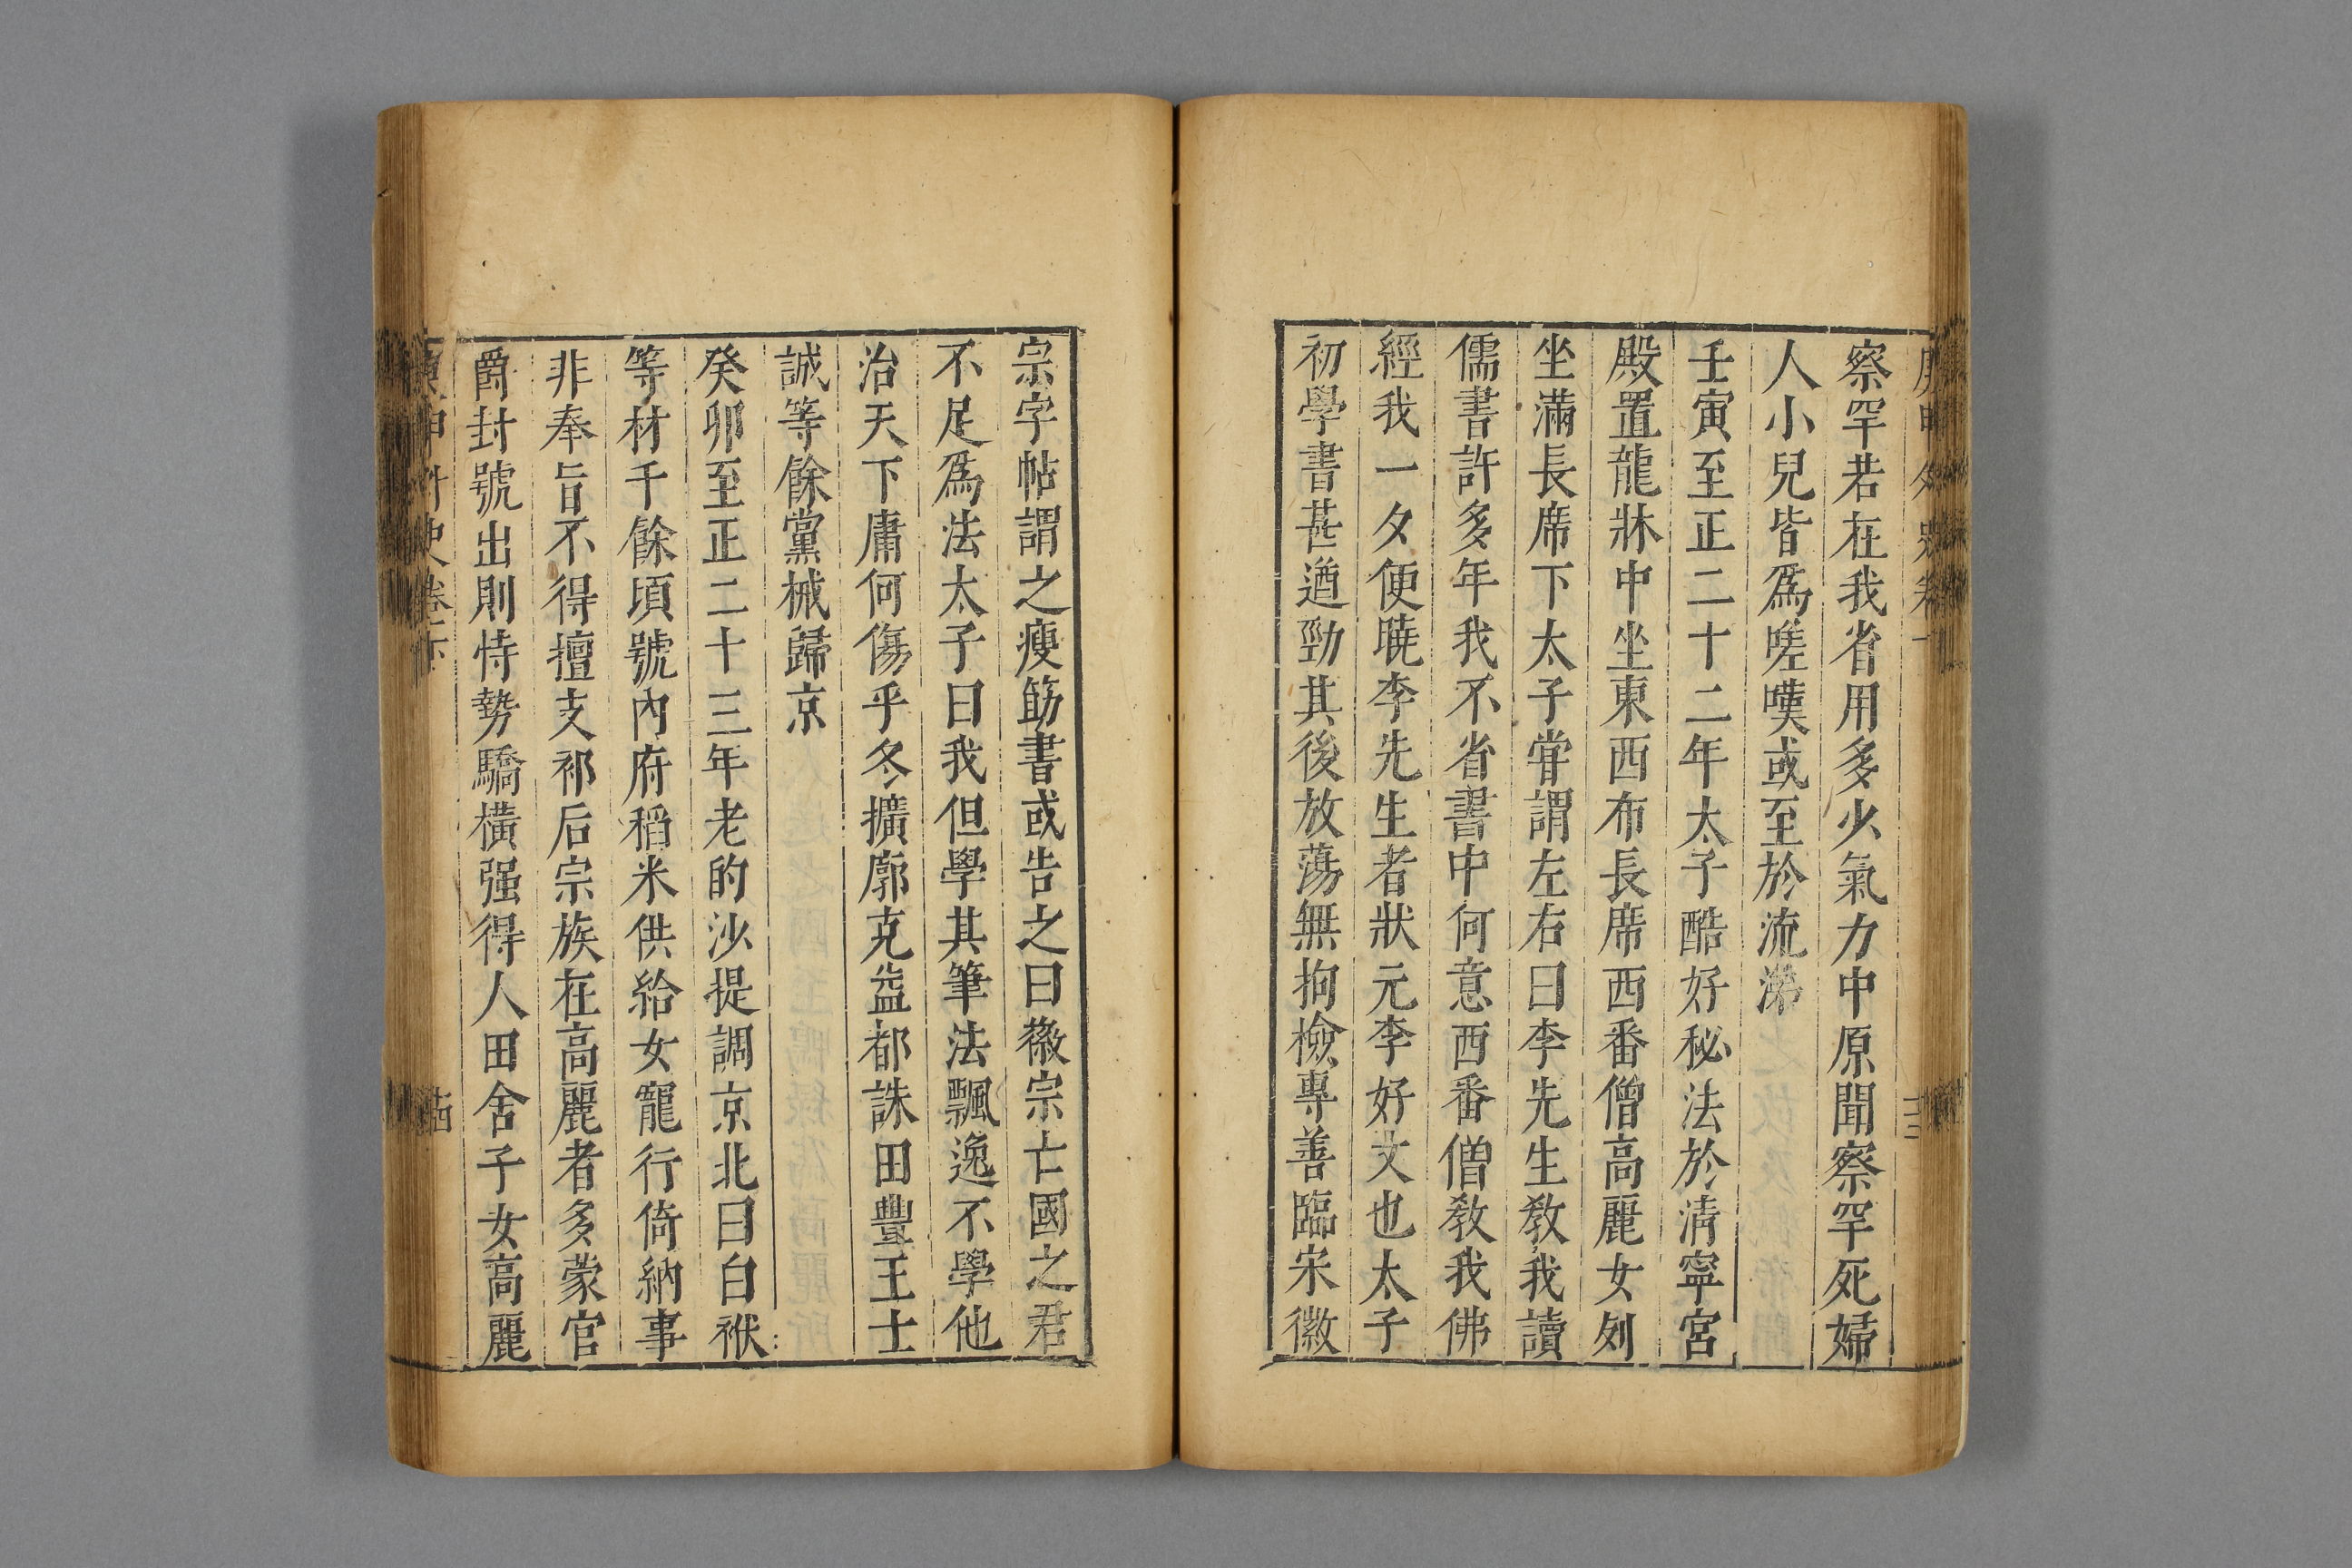 察罕若在我省用多少氣力中原聞察罕死婦
人小兒皆爲嗟嘆或至於流涕
壬寅至正二十二年太子酷好秘法於清寧宮
殿置龍牀中坐東西布長席西番僧高麗女列
坐滿長席下太子甞謂左右曰李先生教我讀
儒書許多年我不省書中何意西番僧教我佛
經我一夕便曉李先生者狀元李好文也太子
初學書甚遒勁其後放蕩無拘檢專善臨宋徽
宗字帖謂之瘦筋書或告之曰徽宗亡國之君
不足爲法太子曰我但學其筆法飄逸不學他
治天下庸何傷乎冬擴廓克益都誅田豐王士
誠等餘黨械歸京
癸卯至正二十三年老的沙提調京北曰白袱
等材千餘頃號內府稻米供給女寵行倚納事
非奉旨不得擅支祁后宗族在高麗者多蒙官
爵封號出則恃勢驕橫强得人田舍子女高麗
庚申外史卷下